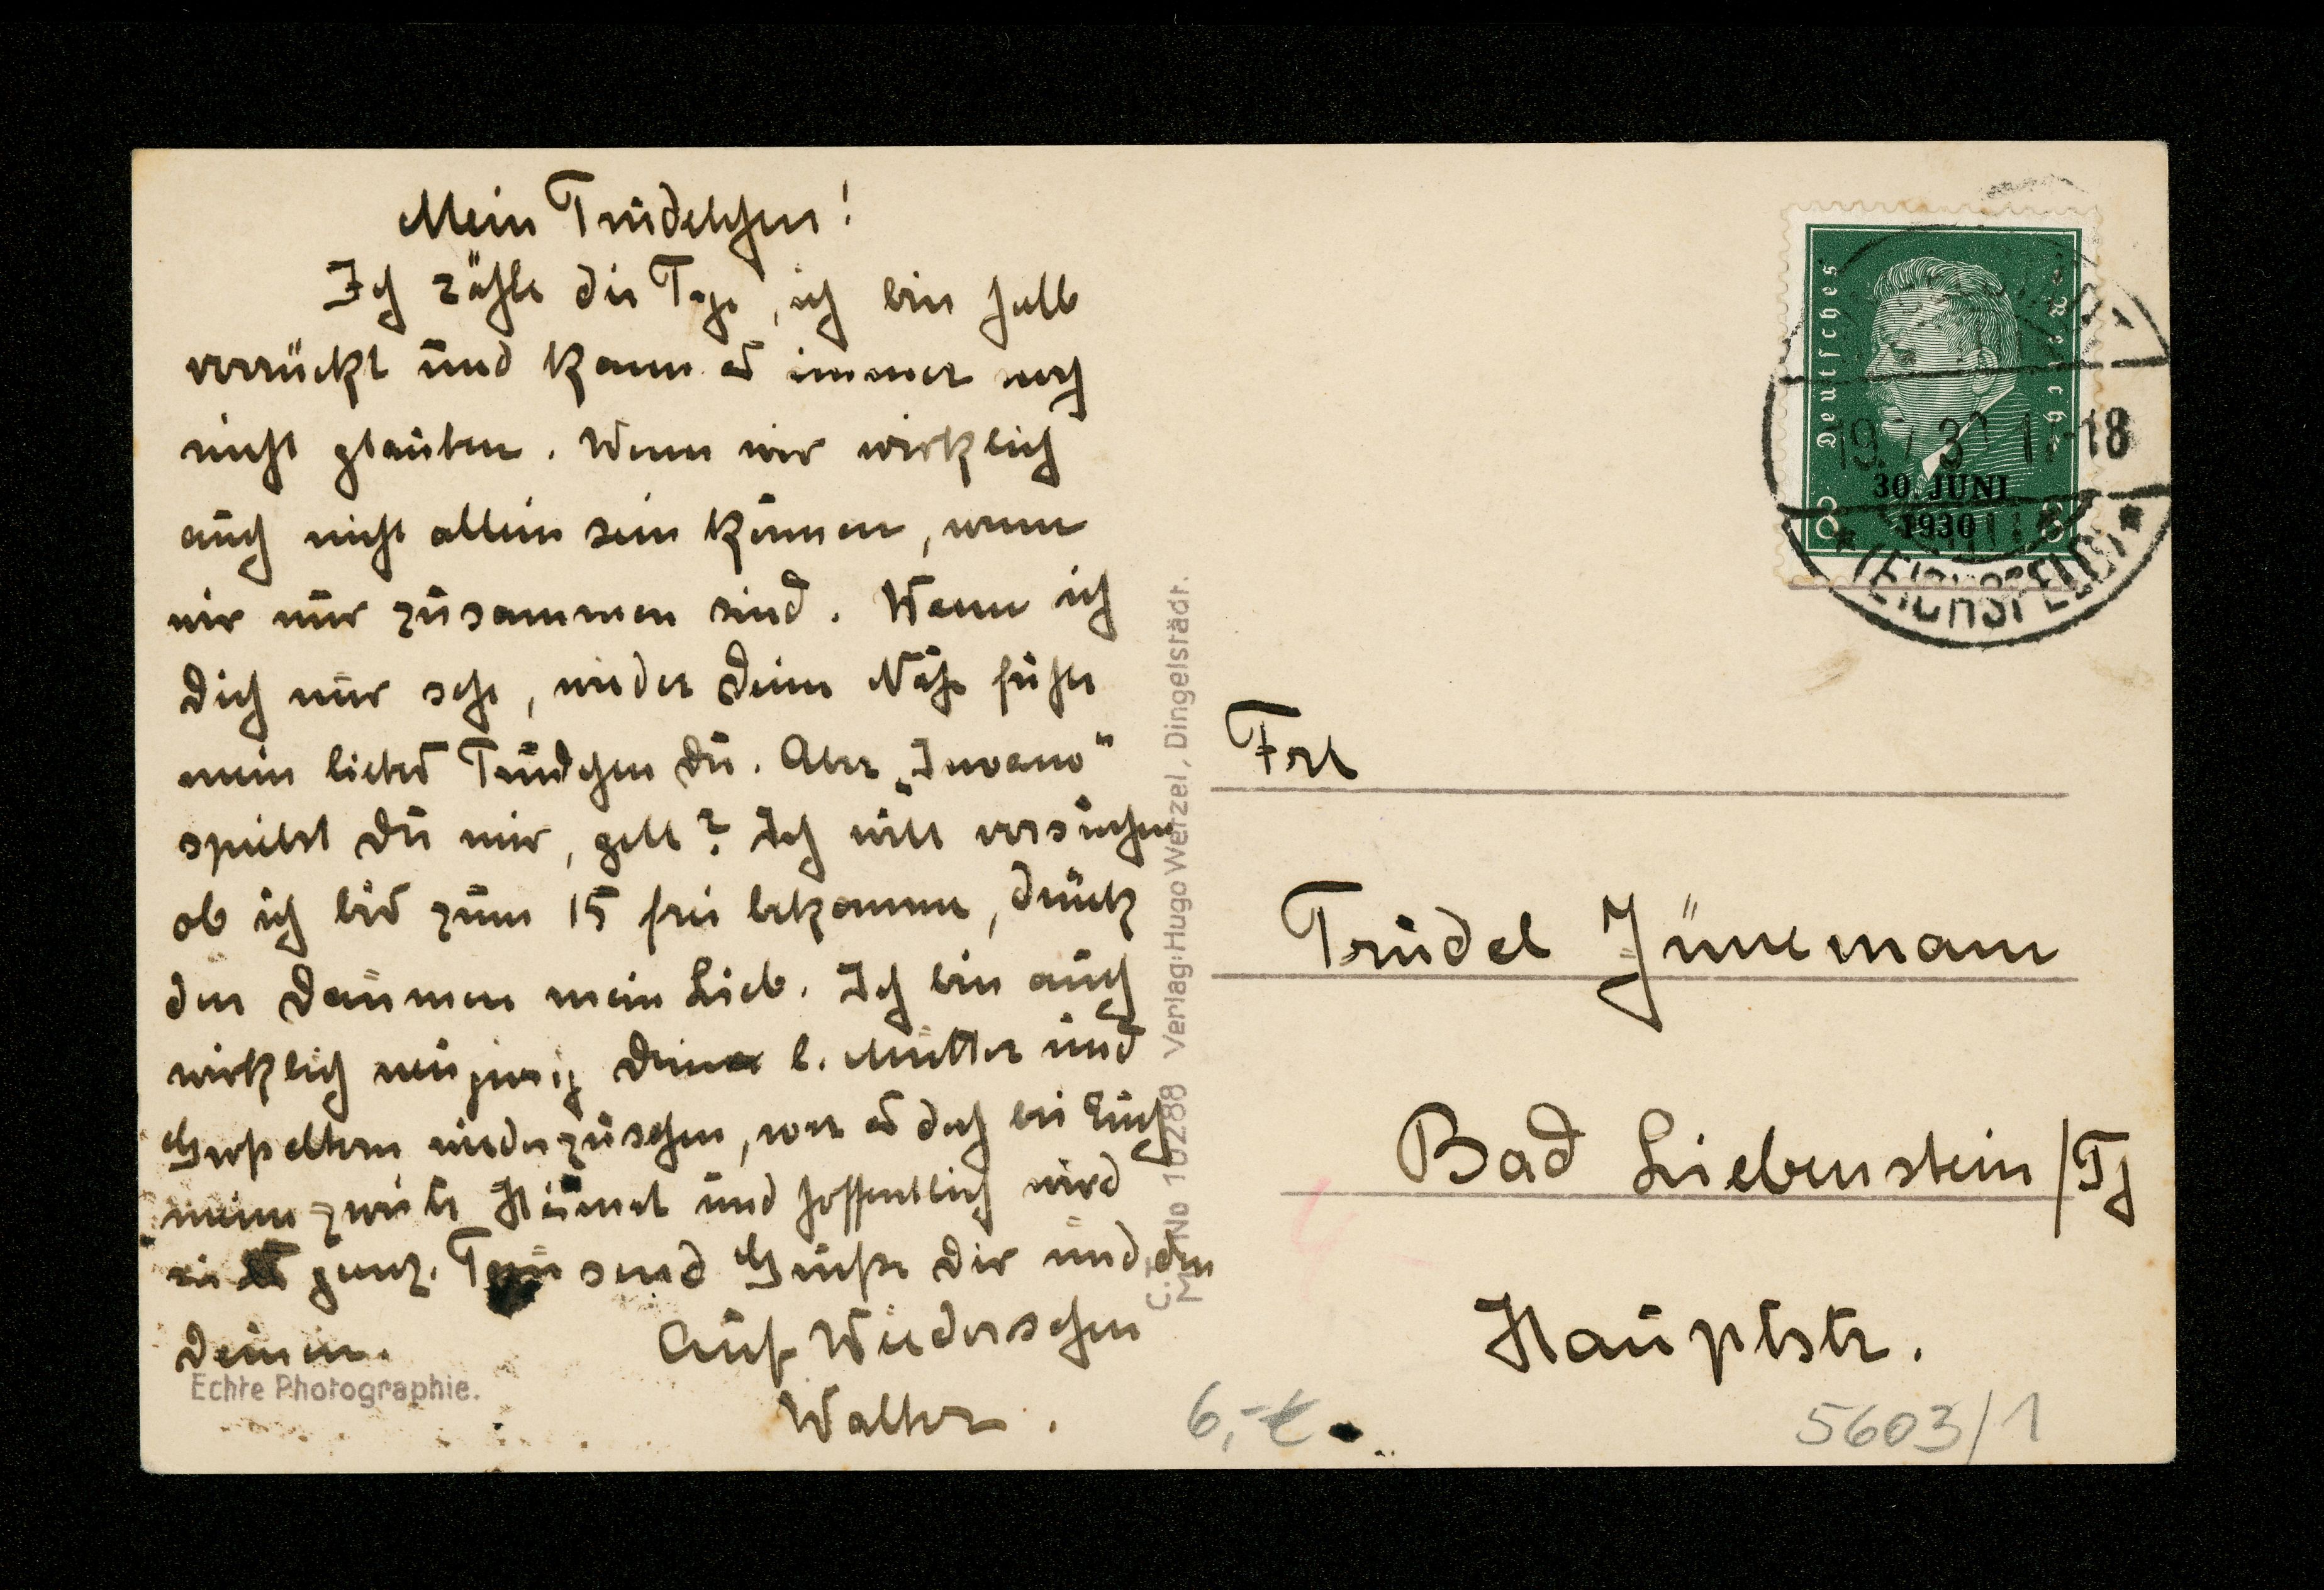 Mein Trudelchen!
Ich zähle die Tage, ich bin halb
verrückt und kann es immer noch
nicht glauben. Wenn wir wirklich
auch nicht allein sein können, wenn
wir nur zusammen sind. Wenn ich
Dich nur sehe, wieder Deine Nähe fühle
mein liebes Trudchen Du. Aber „Juvano“
spielst Du mir, gell? Ich will versuchen
ob ich bis zum 15 frei bekomme, drück
den Daumen mein Lieb. Ich bin auch
wirklich neugierig Deine l. Mutter und
Großeltern wiederzusehen, war es doch bei Euch
meine zweite Heimat und hoffentlich wird
sie es ganz. Tausend Grüße Dir und den
Deinen.
Auf Wiedersehen
Walter.
Echte Photographie.
C.T.
M No 10288 Verlag: Hugo Werzel, Dingelstädt.
Deutsches Reich
19.7.30 17-18
30. JUNI
1930
8 8
(EICHSFELD)
Frl
Trudel Jünemann
Bad Liebenstein/Th
Hauptstr.
6,-€
5603/1